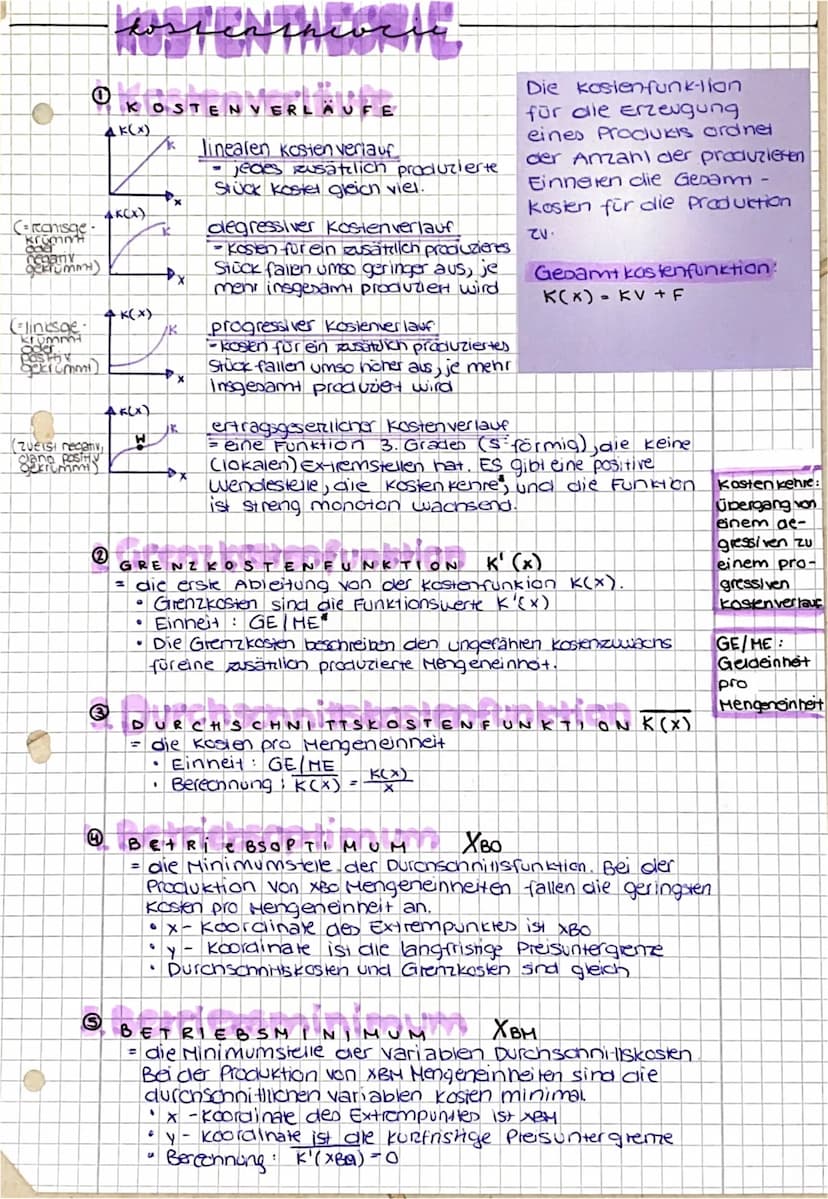 KOSTENTHEORIE
kostentheorie
Die Kostenfunktion
für die Erzeugung
eines Produkts ordnet
der Anzahl der produzierten
Einheiten die Gesamt-
kosten für die Produktion
zu.
Gesamtkostenfunktion:
K(x) = KV + F
1. Kostenverläufe
① KOSTENVERLÄUFE
K(x)
K
x
linearen Kostenverlauf
= jedes zusätzlich produzierte
Stück kostet gleich viel.
K(x)
K
x
(=rechtsge-
krümmt
oder
negativ
gekrümmt)
degressiver Kostenverlauf
= Kosten für ein zusätzlich produzieres
Stück fallen umso geringer aus, je
mehr insgesamt produziert wird
K(x)
K
x
(=linksge-
krümmt
oder
positiv
gekrümmt)
progressiver Kostenverlauf
= Kosten für ein zusätzlich produziertes
Stück fallen umso höher aus, je mehr
insgesamt produziert wird
K(x)
W
K
x
(zuerst negativ,
dann positiv
gekrümmt)
ertragsgesetzlicher Kostenverlauf
= eine Funktion 3. Grades (s-förmig), die keine
(lokalen) Extremstellen hat. ES gibt eine positive
Wendestelle, die Kostenkehre*, und die Funktion
ist streng monoton wachsend.
Kostenkehre:
Übergang von
einem de-
gressiven zu
einem pro-
gressiven
Kostenverlauf
2. Grenzkostenfunktion
② GRENZKOSTENFUNKTION K'(x)
= die erste Ableitung von der Kostenfunktion K(x).
• Grenzkosten sind die Funktionswerte K'(x)
• Einheit : GE/ME*
• Die Grenzkosten beschreiben den ungefähren Kostenzuwachs
für eine zusätzlich produzierte Mengeneinheit.
GE/ME:
Geldeinheit
pro
Mengeneinheit
3. Durchschnittskostenfunktion
③ DURCHSCHNITTSKOSTENFUNKTION K̅(x)
= die Kosten pro Mengeneinheit
• Einheit : GE/ME
• Berechnung : K̅(x) = K(x)/x
4. Betriebsoptimum
④ BETRIEBSOPTIMUM XBO
= die Minimumstelle der Durchschnittsfunktion. Bei der
Produktion von XBO Mengeneinheiten fallen die geringsten
Kosten pro Mengeneinheit an.
• x - Koordinate des Extrempunktes ist XBO
• y - Koordinate ist die langfristige Preisuntergrenze
• Durchschnittskosten und Grenzkosten sind gleich
5. Betriebsminimum
⑤ BETRIEBSMINIMUM XBM
= die Minimumstelle der variablen Durchschnittskosten.
Bei der Produktion von XBM Mengeneinheiten sind die
durchschnittlichen variablen Kosten minimal.
• x - Koordinate des Extrempunktes ist XBM
• y - Koordinate ist die kurzfristige Preisuntergrenze
• Berechnung : K̅'(XBO) = 0